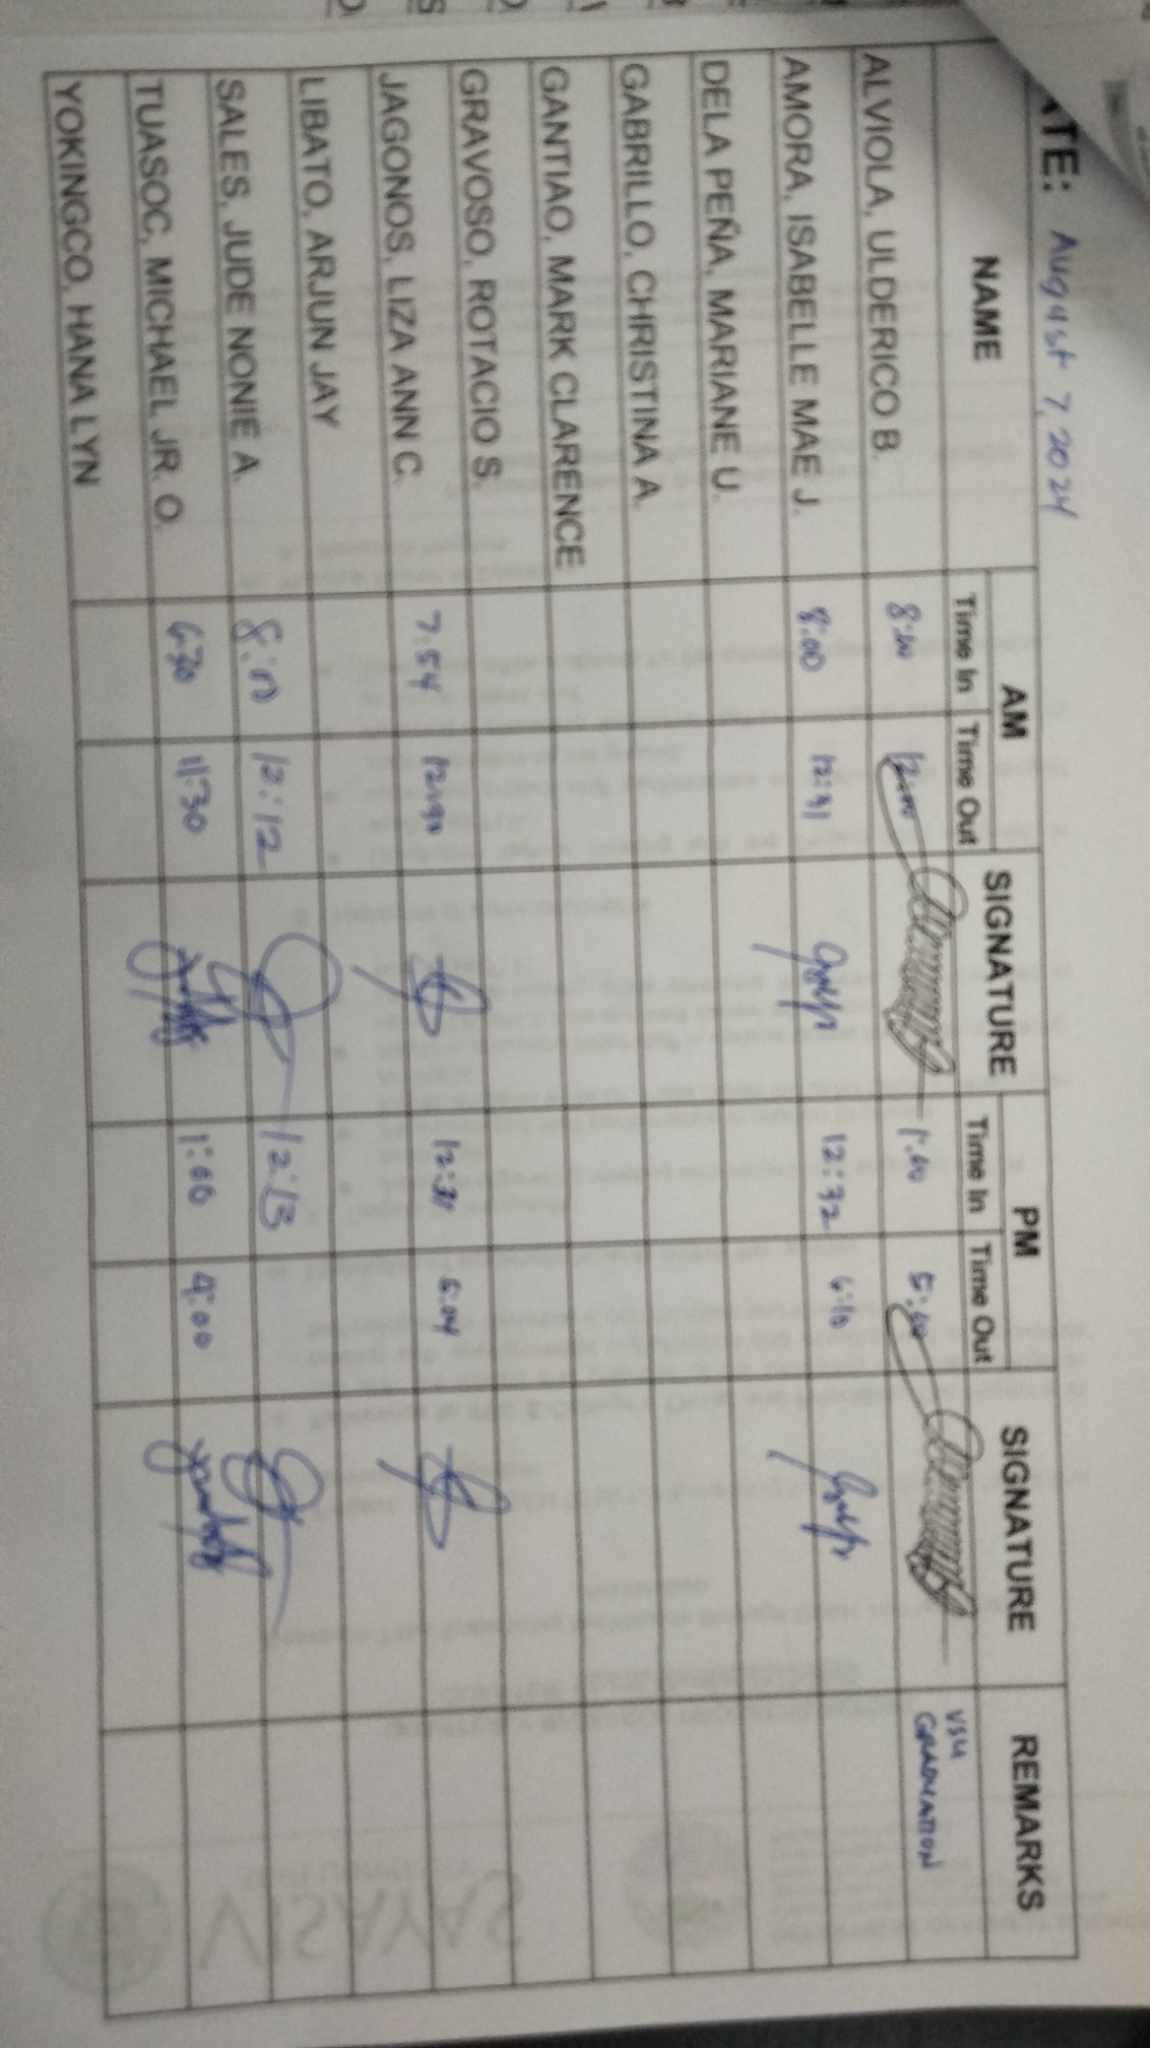 ATE: August 7, 2024
NAME AM SIGNATURE PM SIGNATURE REMARKS
Time In Time Out Time In Time Out
ALVIOLA, ULDERICO B. 8:00 12:00 1:00 5:00 VSU GRADUATION
AMORA, ISABELLE MAE J. 8:00 12:31 12:32 6:10
DELA PEÑA, MARIANE U.
GABRILLO, CHRISTINA A.
GANTIAO, MARK CLARENCE
GRAVOSO, ROTACIO S.
JAGONOS, LIZA ANN C. 7:54 12:30 12:31 5:04
LIBATO, ARJUN JAY
SALES, JUDE NONIE A. 8:10 12:12 12:13
TUASOC, MICHAEL, JR. O. 6:30 11:30 1:00 4:00
YOKINGCO, HANA LYN